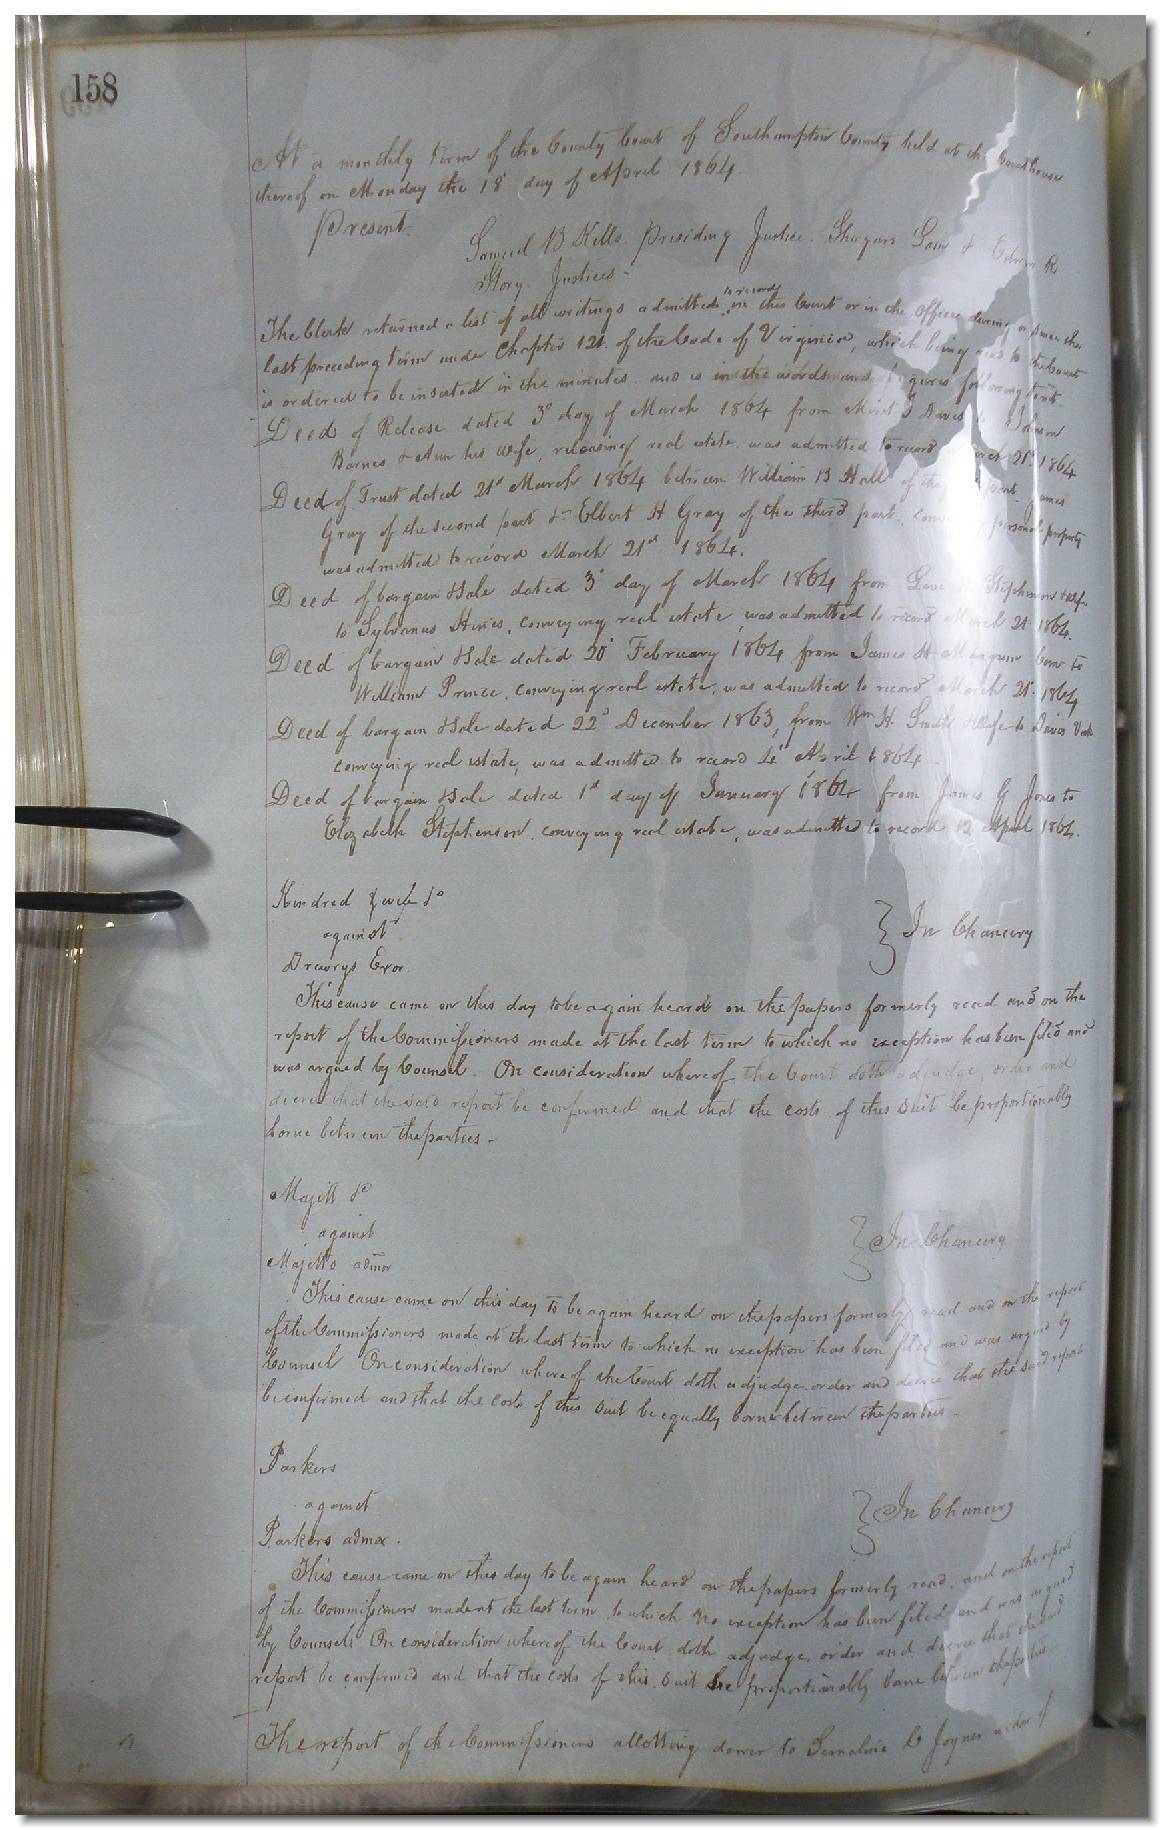 158
At a monthly term of the County Court of Southampton County held at the Courthouse
thereof on Monday the 18th day of April 1864
Present.
Samuel B Kello Presiding Justice. Shugars Lain & Edwin R
Story. Justices
The Clerk returned a list of all writings admitted to record in this Court or in the Office during & since the
last preceding term under Chapter 121. of the Code of Virginia, which being read to the Court
is ordered to be inserted in the minutes and is in the words and figures following to wit.
Deed of Release dated 3d day of March 1864 from Davis
Barnes & Ann his wife, releasing real estate. was admitted to record March 21st 1864
Deed of Trust dated 21st March 1864 between William B Hall of the part James
Gray of the second part & Elbert H Gray of the third part. personal property
was admitted to record March 21st 1864.
Deed of bargain & Sale dated 3d day of March 1864 from Stephenson & wife
to Sylvanus Hines, conveying real estate, was admitted to record March 21st 1864.
Deed of bargain & Sale dated 20th February 1864 from James H Mangum to
William Prince, conveying real estate, was admitted to record March 21st 1864
Deed of bargain & Sale dated 22d December 1863, from Wm H. Smith & Wife to Davis
conveying real estate, was admitted to record 4th April 1864.
Deed of bargain & Sale dated 1st day of January 1864 from James G Jones to
Elizabeth Stephenson, conveying real estate, was admitted to record 12 April 1864.
Kindred & wife &c
against
Drewrys Exor.
In Chancery
This cause came on this day to be again heard on the papers formerly read and on the
report of the Commissioners made at the last term to which no exception has been filed and
was argued by Counsel. On consideration whereof the Court doth adjudge, order and
decree that the said report be confirmed and that the costs of this suit be proportionably
borne between the parties -
Majett &c
against
Majetts admor
In Chancery
This cause came on this day to be again heard on the papers formerly read and on the report
of the Commissioners made at the last term to which no exception has been filed and was argued by
Counsel On consideration whereof the Court doth adjudge, order and decree that the said report
be confirmed and that the costs of this suit be equally borne between the parties -
Parkers
against
Parkers admx.
In Chancery
This cause came on this day to be again heard on the papers formerly read. and on the report
of the Commissioners made at the last term to which no exception has been filed and was argued
by Counsel On consideration whereof the Court doth adjudge, order and decree that the said
report be confirmed and that the costs of this suit be proportionably borne between the parties -
The report of the Commissioners allotting dower to C Joyner widow of